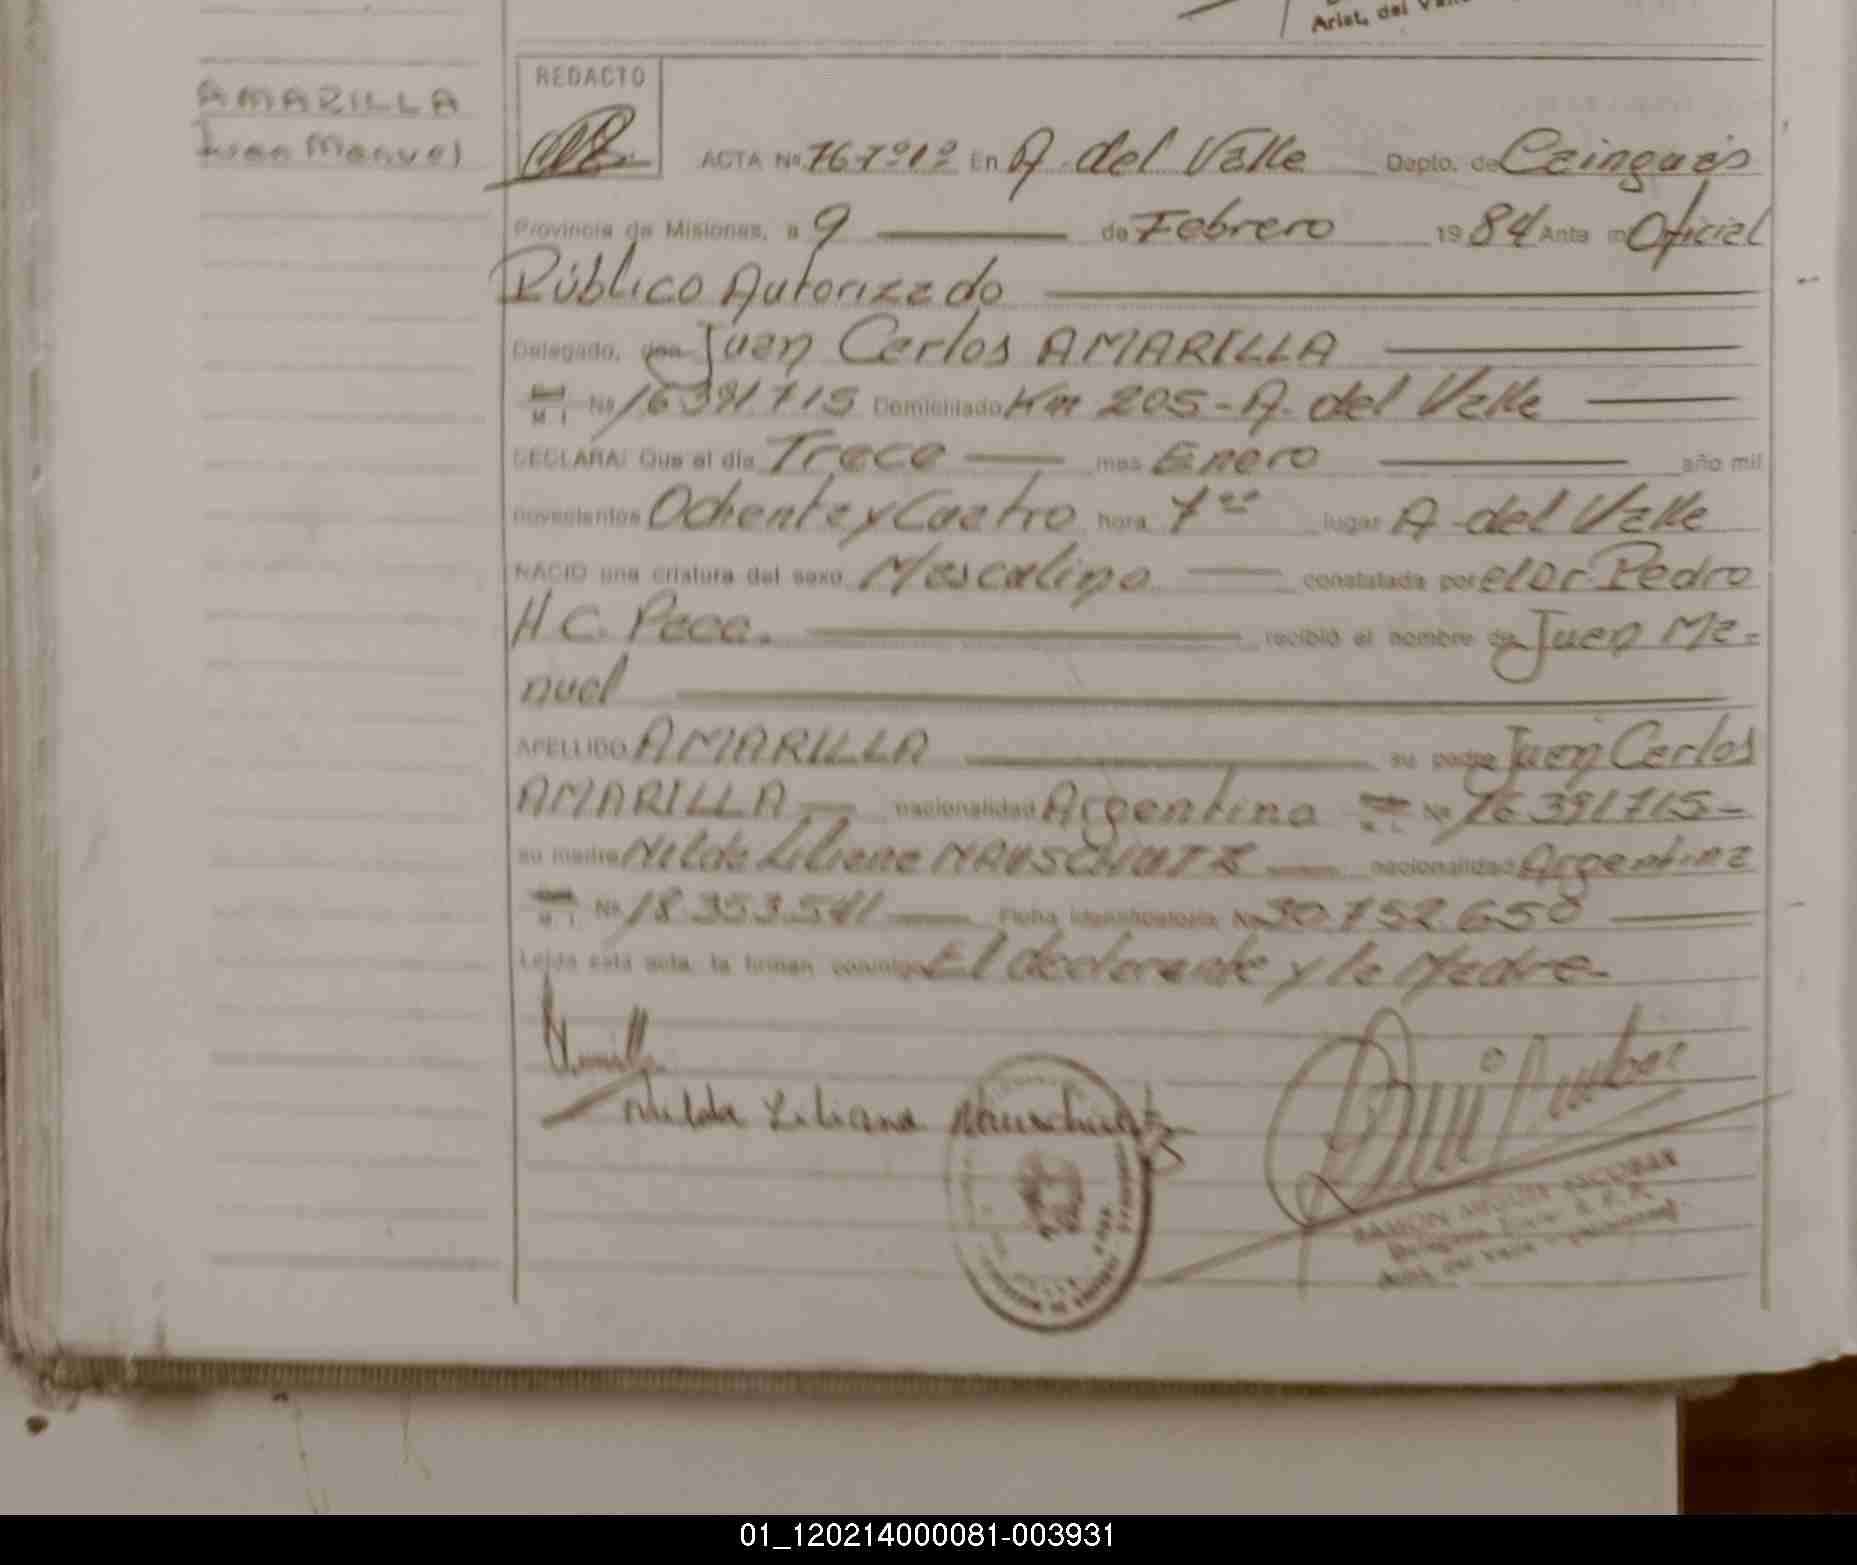 Arist. del Valle
AMARILLA
Juan Manuel
REDACTO
ACTA Nº 76-Tº1º En A. del Valle Depto. de Cainguás
Provincia de Misiones, a 9 de Febrero 1984 Ante mí Oficial
Público Autorizado
Delegado, don Juan Carlos AMARILLA
M. I. Nº 16391715 Domiciliado Km 205-A. del Valle
DECLARA: Que el día Trece mes Enero año mil
novecientos Ochenta y Cuatro hora 7 lugar A. del Valle
NACIO una criatura del sexo Masculino constatada por el Dr. Pedro
H C. recibió el nombre de Juan Ma-
nuel
APELLIDO AMARILLA su padre Juan Carlos
AMARILLA nacionalidad Argentina M. I. Nº 16391715-
su madre Nilda Liliana NAUSCHUTZ nacionalidad Argentina
M. I. Nº 18.353.541 Ficha identificatoria Nº 30.752.650
Leída esta acta, la firman conmigo El declarante y la Madre-
Nilda Liliana Nauschutz
RAMON ESCOBAR
01_120214000081-003931